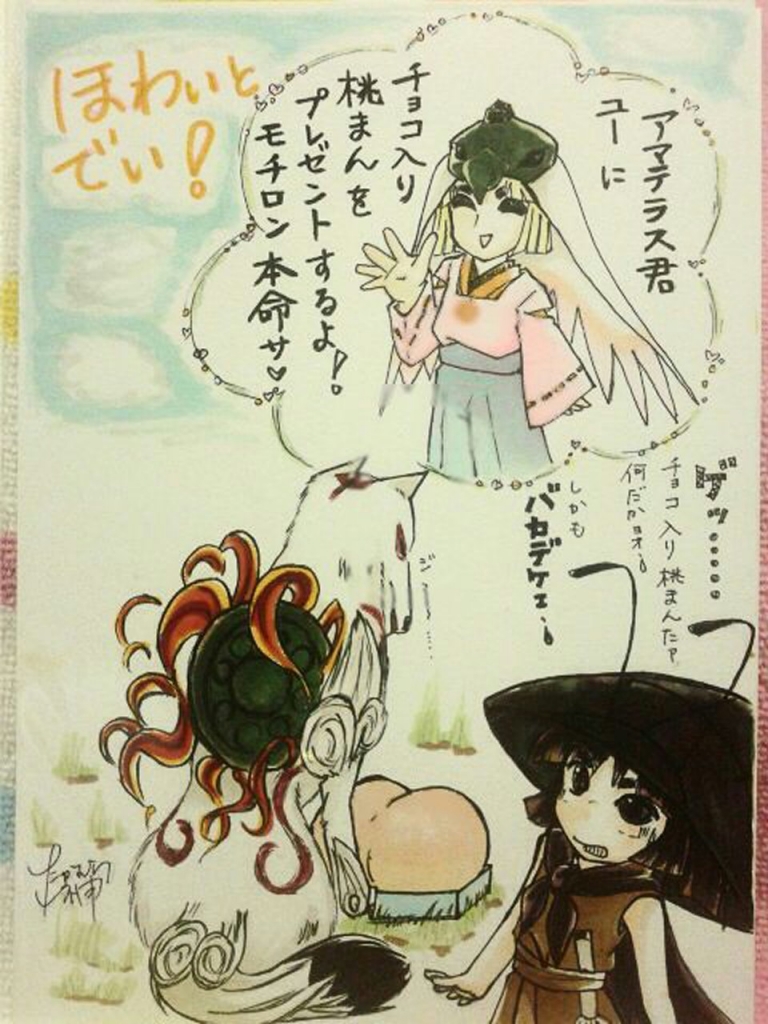 ほわいと
でい!
アマテラス君
ユーに
チョコ入り
桃まんを
プレゼントするよ!
モチロン本命サ♡
ゲッ……
チョコ入り桃まんたァ
何だかョオ。
しかも
バカデケェ!
ジー……